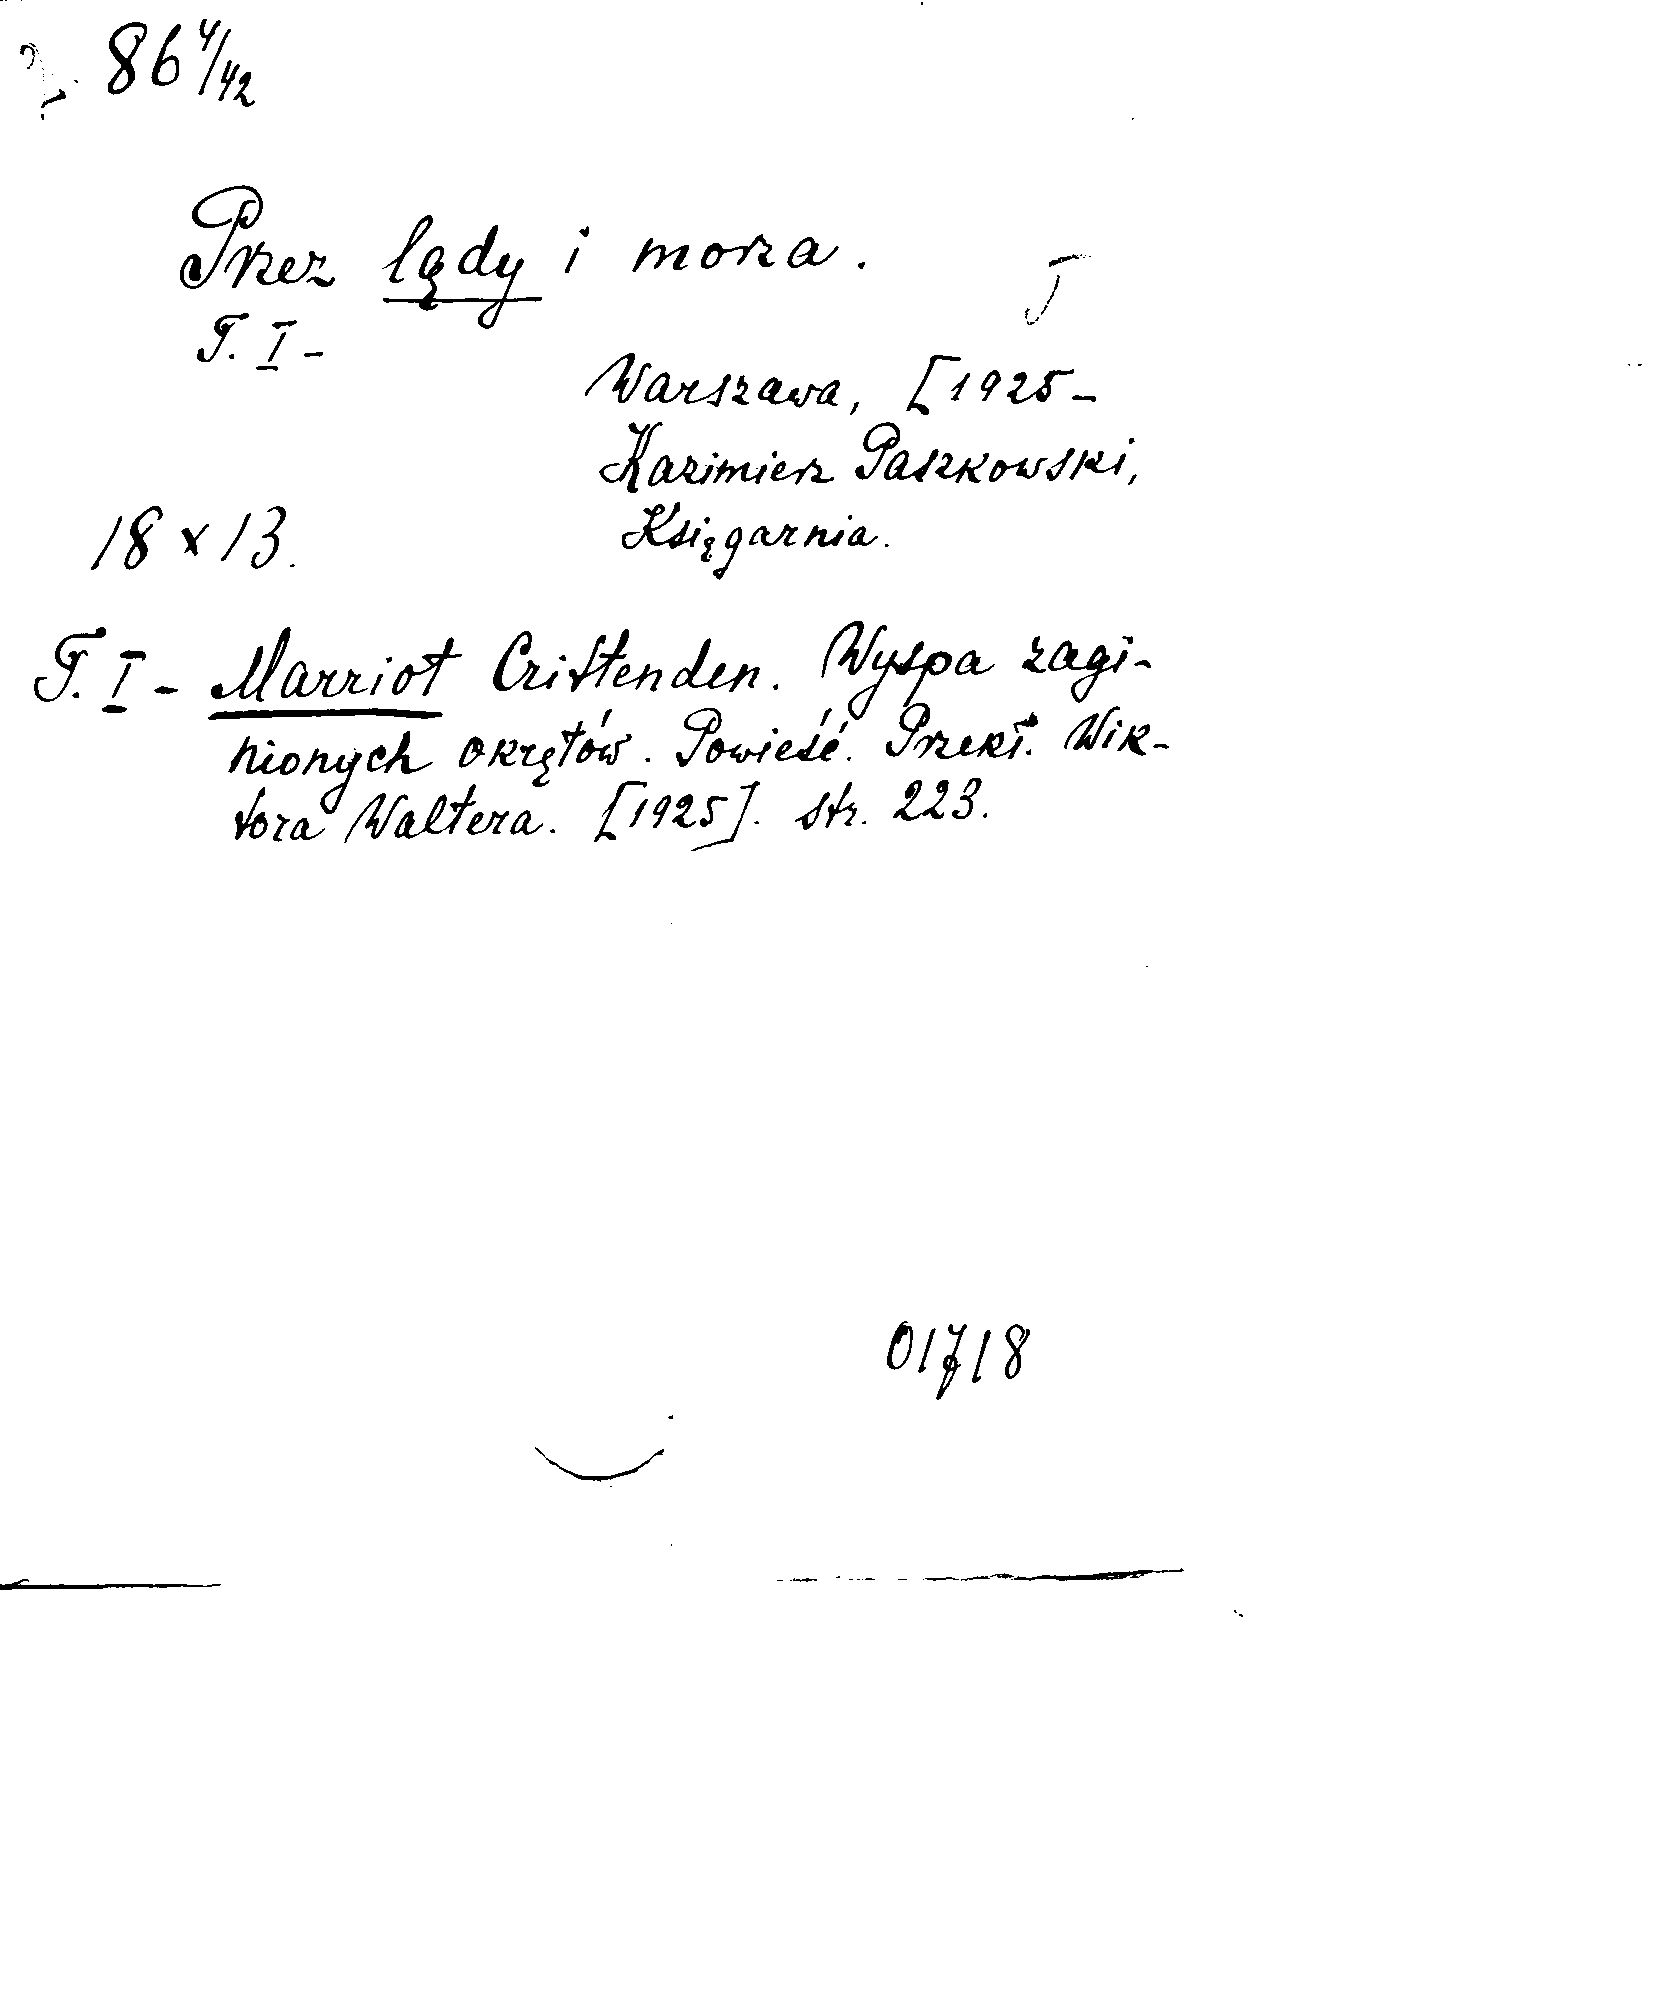 86 4/42
Przez lądy i morza.
T. I -
Warszawa, [1925 -
Kazimierz Paszkowski,
Księgarnia.
18 x 13.
T. I - Marriot Cristenden. Wyspa zagi-
nionych okrętów. Powieść. Przekł. Wik-
tora Waltera. [1925]. str. 223.
01718